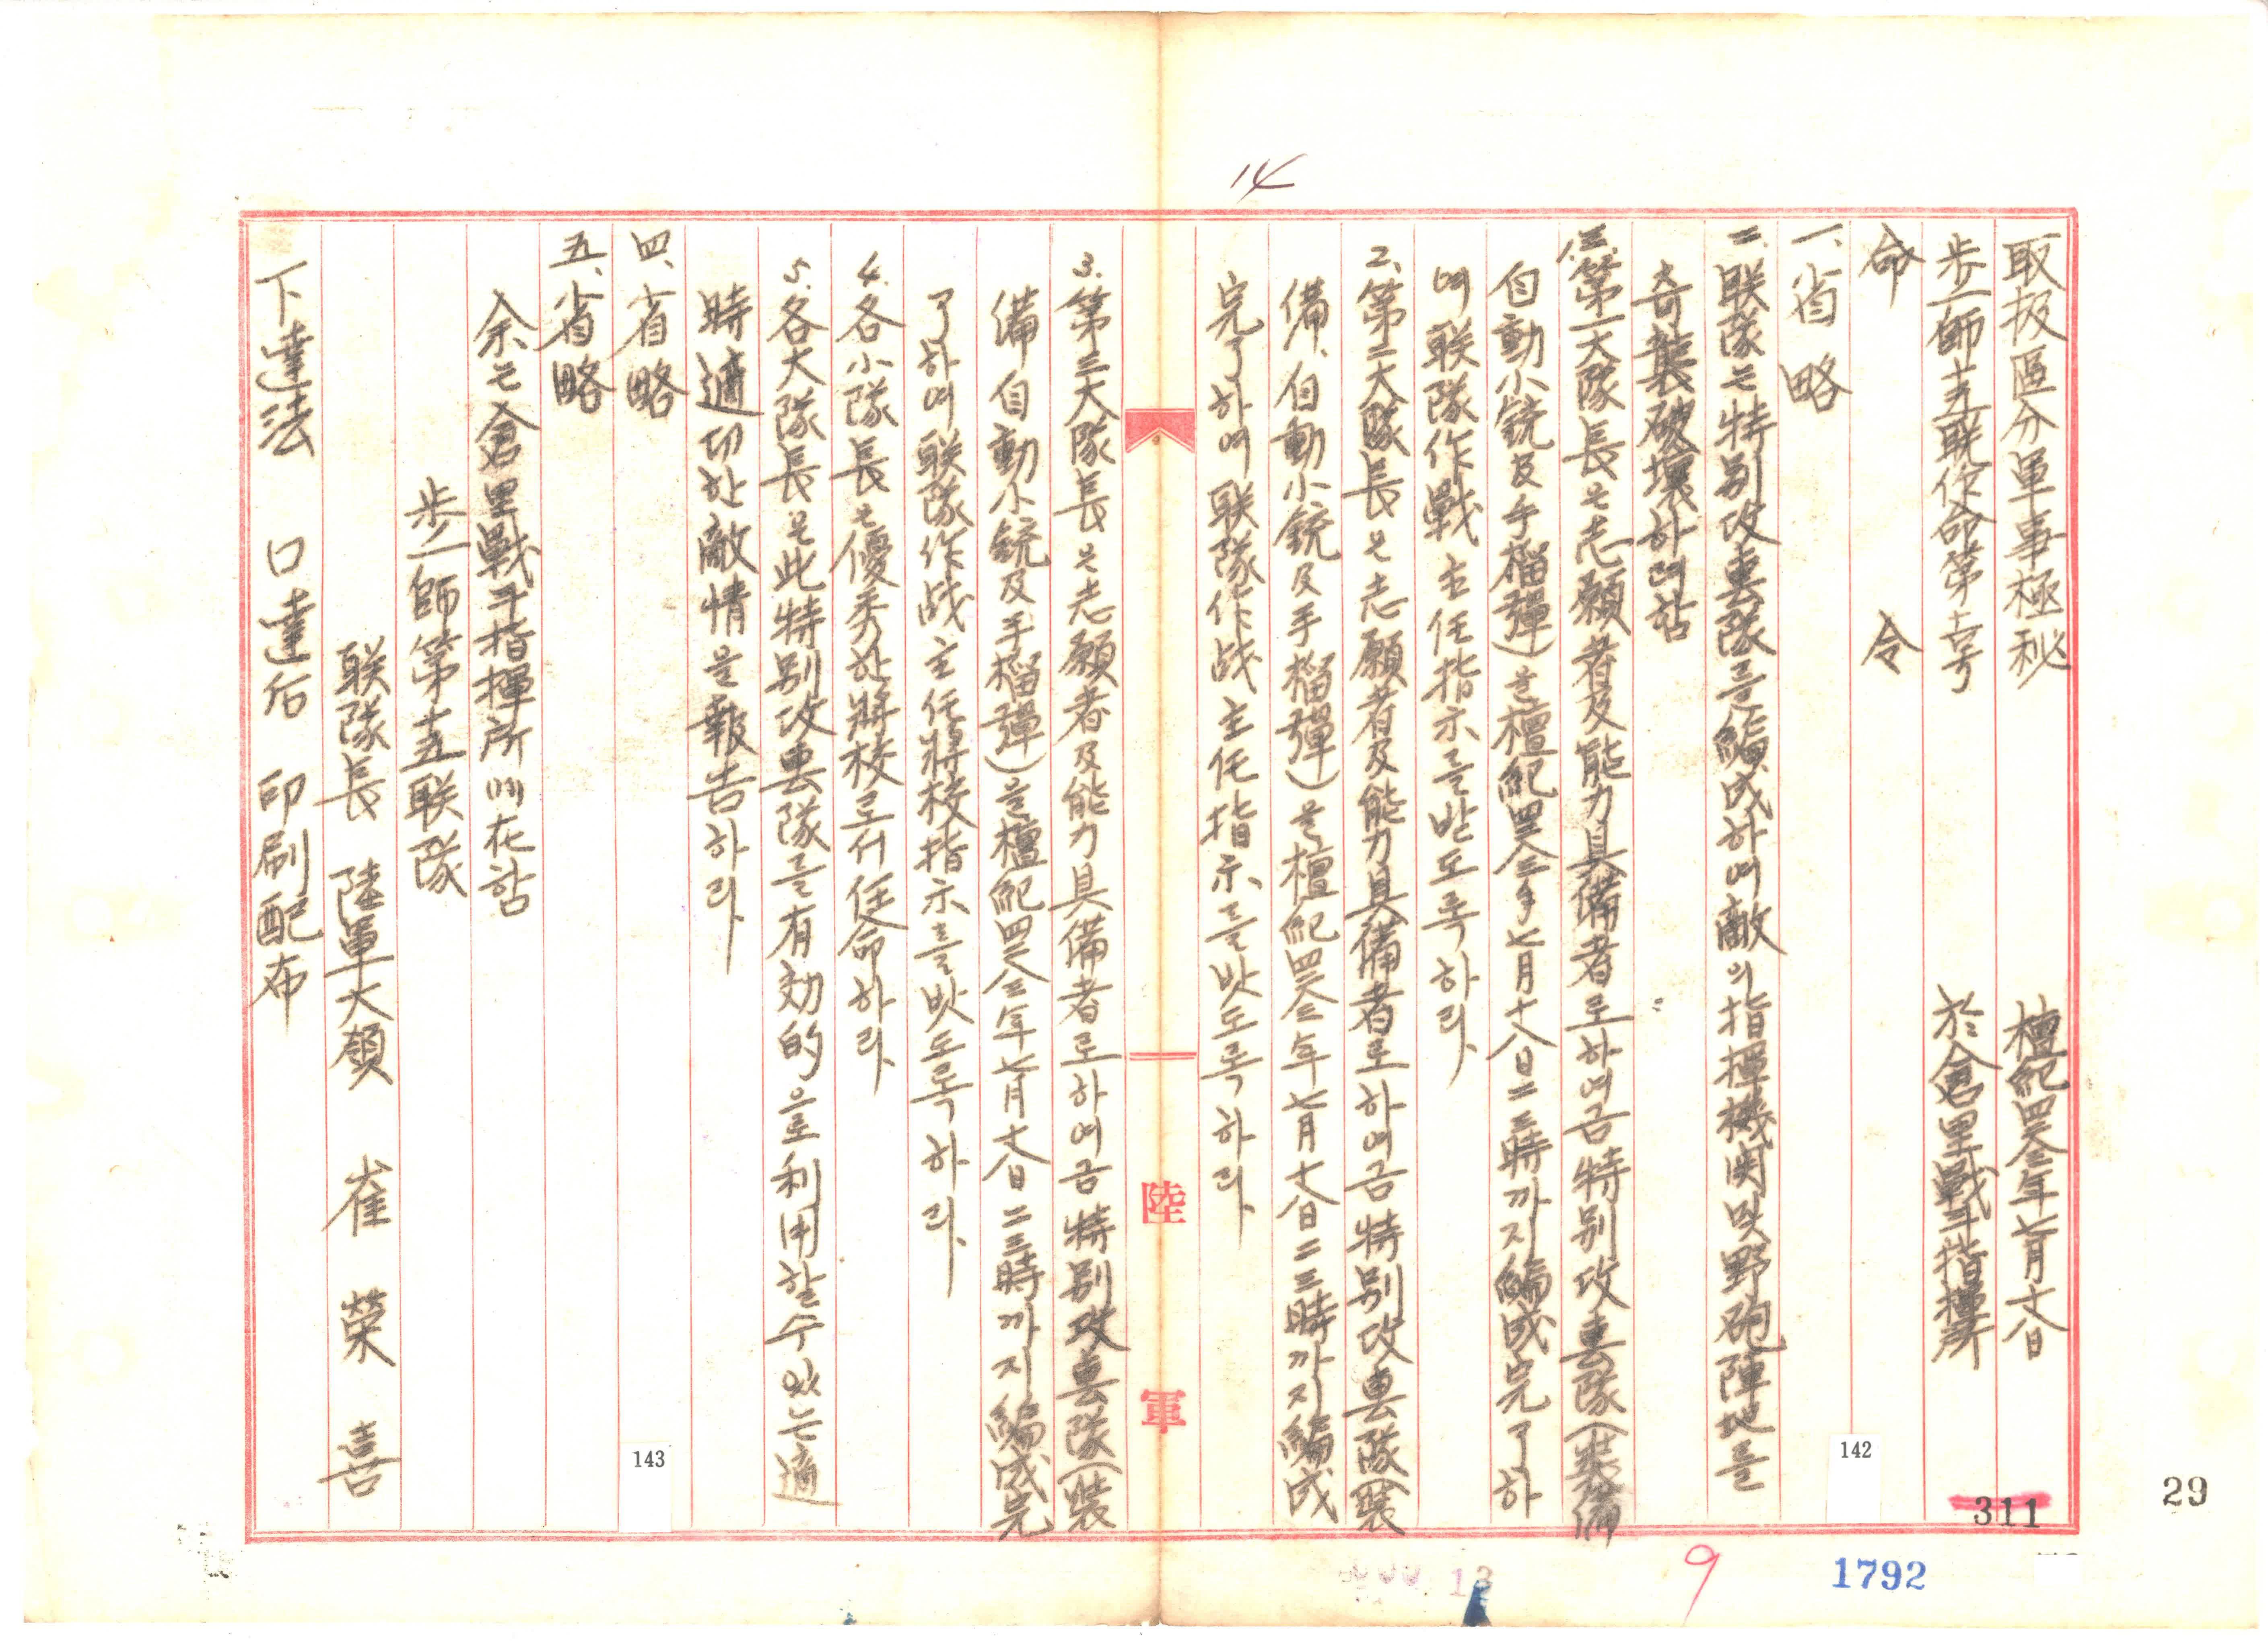 14
取扱區分 軍事極秘 檀紀四二八三年七月十八日
步一師十五联作命第一号 於倉里戰斗指揮所
命 令
一、省略
二、联隊는 特別攻袭隊를 編成하여 敵의 指揮機関 및 野砲陣地를
奇襲破壞하여함
三、1.第一大隊長은 志願者及能力具備者로 하여금 特別攻袭隊(裝備
自動小銃及手榴彈)을 檀紀四二八三年七月十八日二三時까지 編成完了하
여 联隊作戰主任指示를 받도록 하라.
2.第二大隊長은 志願者及能力具備者로 하여금 特別攻袭隊(裝
備、自動小銃及手榴彈)을 檀紀四二八三年七月十八日二三時까지 編成
完了하여 联隊作战主任指示를 받도록 하라.
3.第三大隊長은 志願者及能力具備者로 하여금 特別攻袭隊(裝
備 自動小銃及手榴彈)을 檀紀四二八三年七月十八日二三時까지 編成完
了하여 联隊作战主任將校指示를 받도록 하라.
4.各小隊長은 優秀한 將校로서 任命하라.
5.各大隊長은 此特別攻袭隊를 有効的으로 利用할수 있는 適
時適切한 敵情을 報告하라.
四、省略
五、省略
余는 倉里戰斗指揮所에 在함
步一師第十五联隊
联隊長 陸軍大領 崔榮喜
下達法 口達后 印刷配布
陸軍
142
143
311
29
1792
9